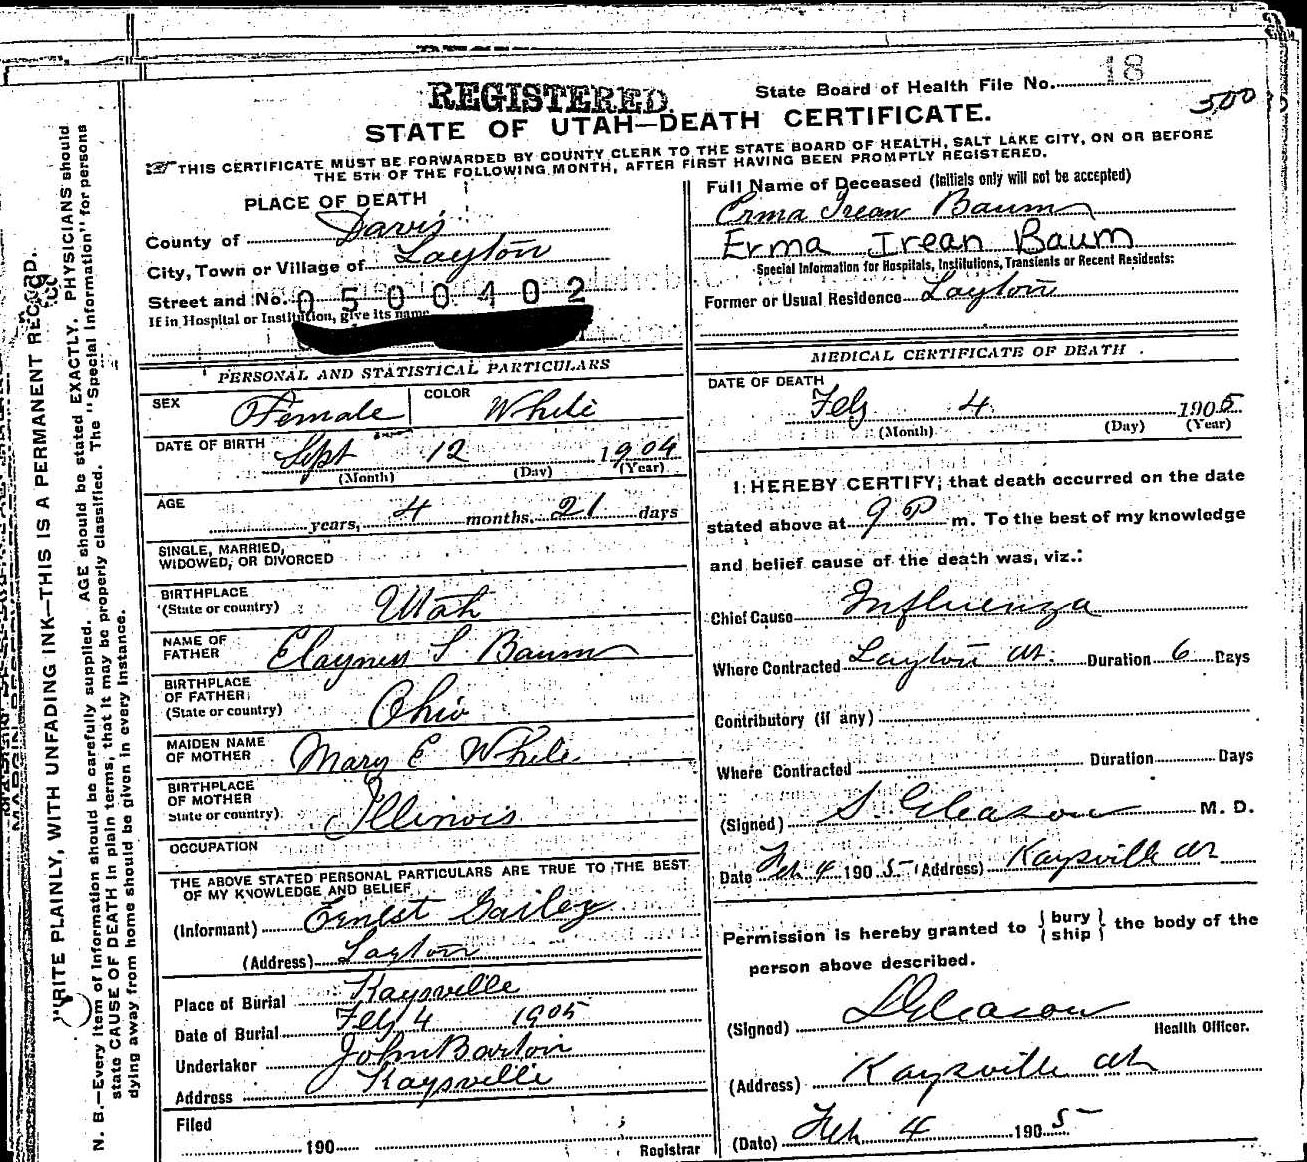 REGISTERED
State Board of Health File No. 18
500
STATE OF UTAH—DEATH CERTIFICATE.
THIS CERTIFICATE MUST BE FORWARDED BY COUNTY CLERK TO THE STATE BOARD OF HEALTH, SALT LAKE CITY, ON OR BEFORE
THE 5TH OF THE FOLLOWING MONTH, AFTER FIRST HAVING BEEN PROMPTLY REGISTERED.
PLACE OF DEATH
County of Davis
City, Town or Village of Layton
Street and No. 0500402
If in Hospital or Institution, give its name
PERSONAL AND STATISTICAL PARTICULARS
SEX Female COLOR White
DATE OF BIRTH Sept 12 1904
(Month) (Day) (Year)
AGE years, 4 months, 21 days
SINGLE, MARRIED,
WIDOWED, OR DIVORCED
BIRTHPLACE
(State or country) Utah
NAME OF
FATHER S. Baum
BIRTHPLACE
OF FATHER
(State or country) Ohio
MAIDEN NAME
OF MOTHER Mary E White
BIRTHPLACE
OF MOTHER
State or country) Illinois
OCCUPATION
THE ABOVE STATED PERSONAL PARTICULARS ARE TRUE TO THE BEST
OF MY KNOWLEDGE AND BELIEF
(Informant) Ernest Gailey
(Address) Layton
Place of Burial Kaysville
Date of Burial Feb 4 1905
Undertaker John Barton
Address Kaysville
Filed
190 Registrar
Full Name of Deceased (Initials only will not be accepted)
Erma Irean Baum
Erma Irean Baum
Special Information for Hospitals, Institutions, Transients or Recent Residents:
Former or Usual Residence Layton
MEDICAL CERTIFICATE OF DEATH
DATE OF DEATH
Feb 4 1905
(Month) (Day) (Year)
I HEREBY CERTIFY, that death occurred on the date
stated above at 9 P m. To the best of my knowledge
and belief cause of the death was, viz.:
Chief Cause Influenza
Where Contracted Layton Ut. Duration 6 Days
Contributory (if any)
Where Contracted Duration Days
(Signed) S. Gleason M. D.
Date Feb 4 1905 (Address) Kaysville Ut
Permission is hereby granted to { bury
ship } the body of the
person above described.
(Signed) S Gleason
Health Officer.
(Address) Kaysville Ut
(Date) Feb 4 1905
WRITE PLAINLY, WITH UNFADING INK—THIS IS A PERMANENT RECORD.
N. B.—Every item of information should be carefully supplied. AGE should be stated EXACTLY. PHYSICIANS should
state CAUSE OF DEATH in plain terms, that it may be properly classified. The "Special Information" for persons
dying away from home should be given in every instance.